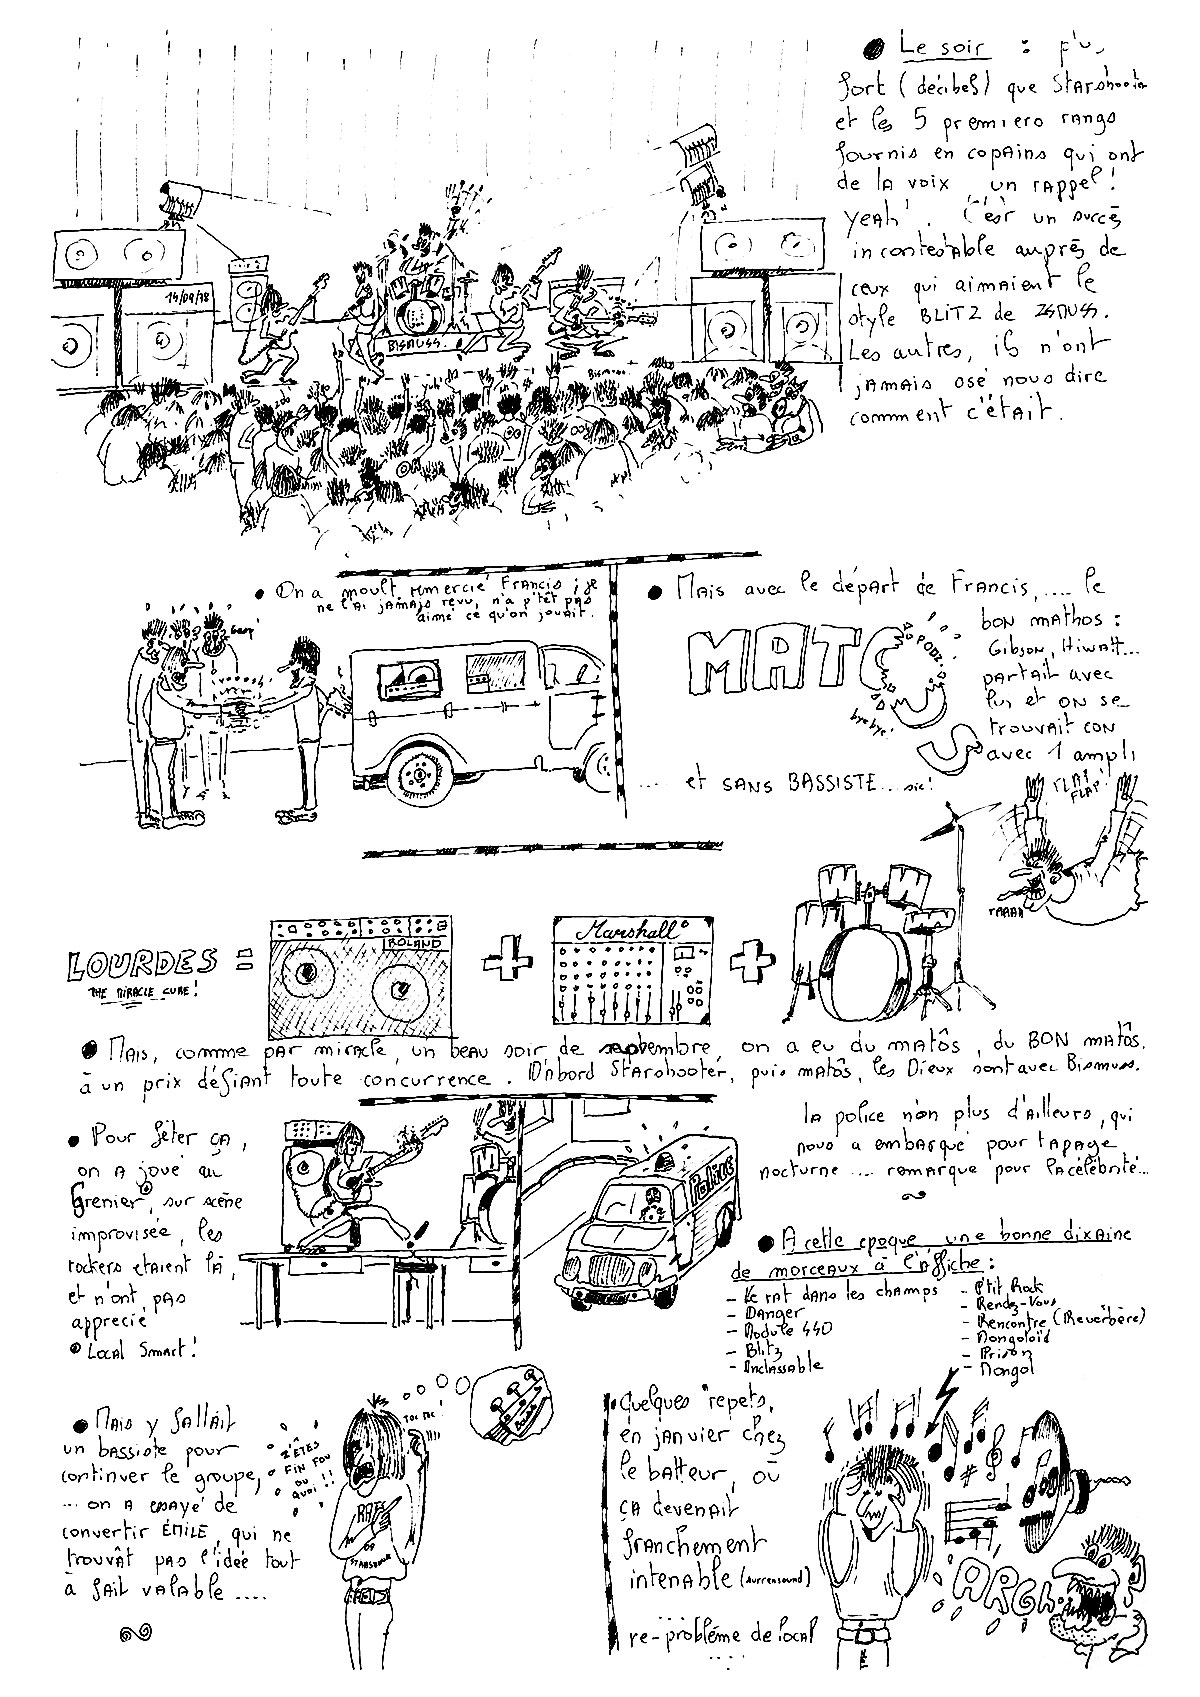 Le soir : plus
fort (décibels) que Starshooter
et les 5 premiers rangs
fournis en copains qui ont
de la voix, un rappel !
yeah ! C'est un succès
incontestable auprès de
ceux qui aimaient le
style BLITZ de
Les autres, ils n'ont
jamais osé nous dire
comment c'était.
BISMUSS.
On a moult remercié Francis ; je
ne l'ai jamais revu, n'a p'têt pas
aimé ce qu'on jouait.
Mais avec le départ de Francis, .... le
bon mathos :
Gibson, Hiwatt...
partait avec
lui et on se
trouvait con
avec 1 ampli
MATOS
bye bye !
... et SANS BASSISTE... sic !
FLAP
FLAP !
rAAAH
LOURDES =
THE MIRACLE CURE !
ROLAND
+
Marshall
+
Mais, comme par miracle, un beau soir de septembre, on a eu du matôs, du BON matôs,
à un prix défiant toute concurrence. D'abord Starshooter, puis matôs, les Dieux sont avec Bismuss.
Pour fêter ça,
on a joué au
Grenier, sur scène
improvisée, les
rockers étaient là,
et n'ont pas
apprécié
Local Smart !
Police
la police non plus d'ailleurs, qui
nous a embarqué pour tapage
nocturne .... remarque pour la célébrité...
A cette époque une bonne dixaine
de morceaux à l'affiche :
- Le rat dans les champs
- Danger
- Module 440
- Blitz
- Inclassable
- P'tit Rock
- Rendez-Vous
- Rencontre (Réverbère)
- Mongoloïd
- Prison
- Mongol
Mais y fallait
un bassiste pour
continuer le groupe,
... on a essayé de
convertir ÉMILE, qui ne
trouvât pas l'idée tout
à fait valable ....
Z'ÊTES
FIN FOU
OU
QUOI !!
TOC TOC !
Quelques "repets,
en janvier chez
le batteur, où
ça devenait
franchement
intenable (surrensound)
....
re-problème de local
....
ARGH